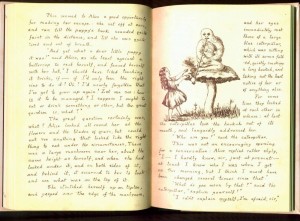 This seemed to Alice a good opportunity
for making her escape. She set off at once,
and ran till the puppy's bark sounded quite
faint in the distance, and till she was quite
tired and out of breath.
"And yet what a dear little puppy
it was!" said Alice, as she leant against a
buttercup to rest herself, and fanned herself
with her hat, "I should have liked teaching
it tricks, if — if I'd only been the right
size to do it! Oh! I'd nearly forgotten that
I've got to grow up again! Let me see: how
is it to be managed? I suppose I ought to
eat or drink something or other, but the great
question is what?"
The great question certainly was
what? Alice looked all round her at the
flowers and the blades of grass but could
not see anything that looked like the right
thing to eat under the circumstances. There
was a large mushroom near her, about the
same height as herself, and when she had
looked under it, and on both sides of it, and
behind it, it occurred to her to look
and see what was on the top of it.
She stretched herself up on tiptoe,
and peeped over the edge of the mushroom,
and her eyes
immediately met
those of a large
blue caterpillar,
which was sitting
with its arms fold-
ed, quietly smoking
a long hookah, and
taking not the least
notice of her or
of anything else.
For some
time they looked
at each other in
silence: at last
the caterpillar took the hookah out of its
mouth, and languidly addressed her.
"Who are you?" said the caterpillar.
This was not an encouraging opening
for a conversation: Alice replied rather shyly,
"I — I hardly know, sir, just at present —
at least I know who I was when I got
up this morning, but I think I must have
been changed several times since that."
"What do you mean by that?" said the
caterpillar, "explain yourself!"
"I ca'n't explain myself, I'm afraid, sir,"